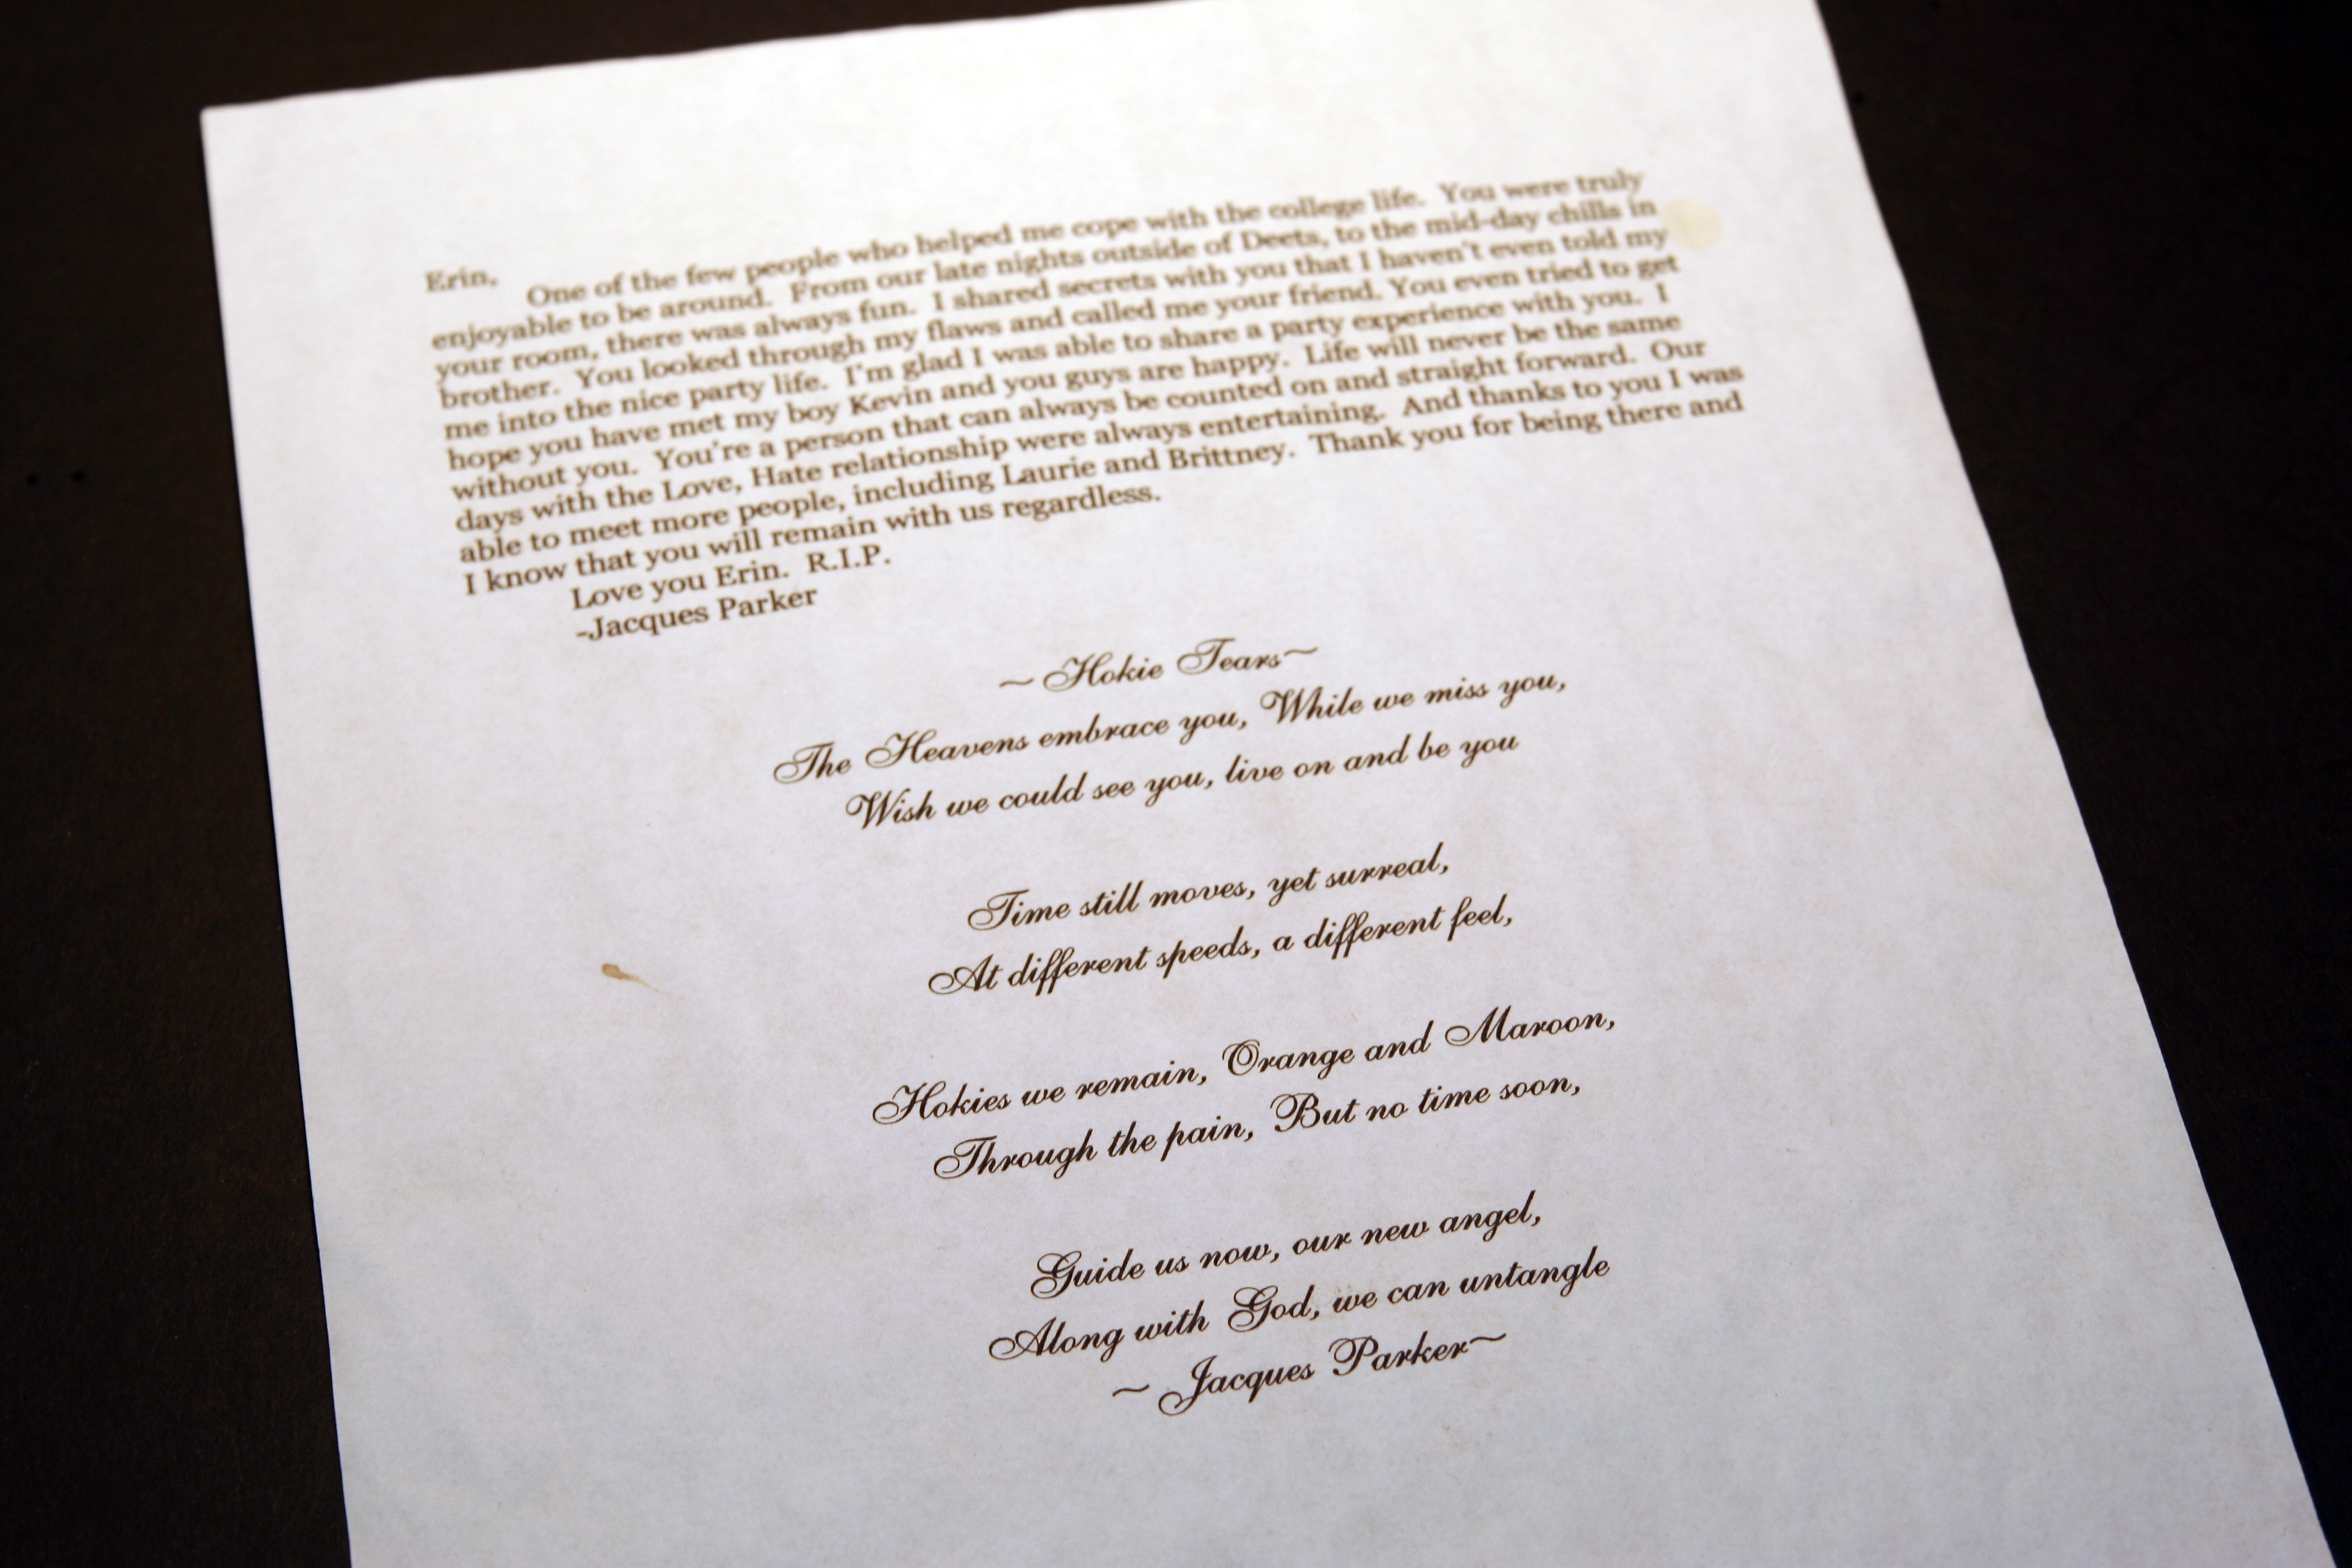 Erin,
One of the few people who helped me cope with the college life. You were truly
enjoyable to be around. From our late nights outside of Deets, to the mid-day chills in
your room, there was always fun. I shared secrets with you that I haven't even told my
brother. You looked through my flaws and called me your friend. You even tried to get
me into the nice party life. I'm glad I was able to share a party experience with you. I
hope you have met my boy Kevin and you guys are happy. Life will never be the same
without you. You're a person that can always be counted on and straight forward. Our
days with the Love, Hate relationship were always entertaining. And thanks to you I was
able to meet more people, including Laurie and Brittney. Thank you for being there and
I know that you will remain with us regardless.
Love you Erin. R.I.P.
-Jacques Parker
~ Hokie Tears~
The Heavens embrace you, While we miss you,
Wish we could see you, live on and be you
Time still moves, yet surreal,
At different speeds, a different feel,
Hokies we remain, Orange and Maroon,
Through the pain, But no time soon,
Guide us now, our new angel,
Along with God, we can untangle
~ Jacques Parker~